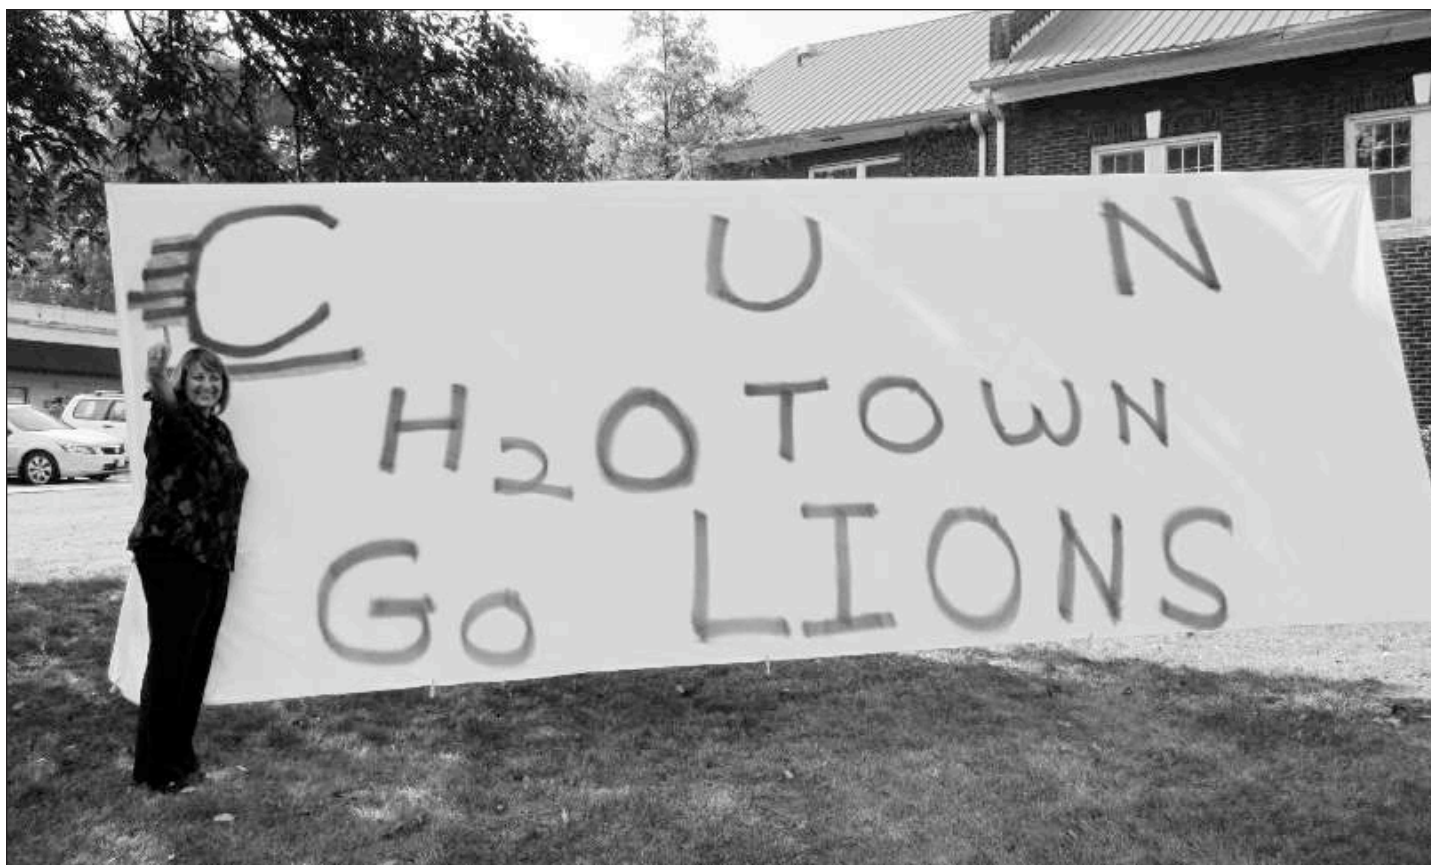 C U N
H2O TOWN
GO LIONS